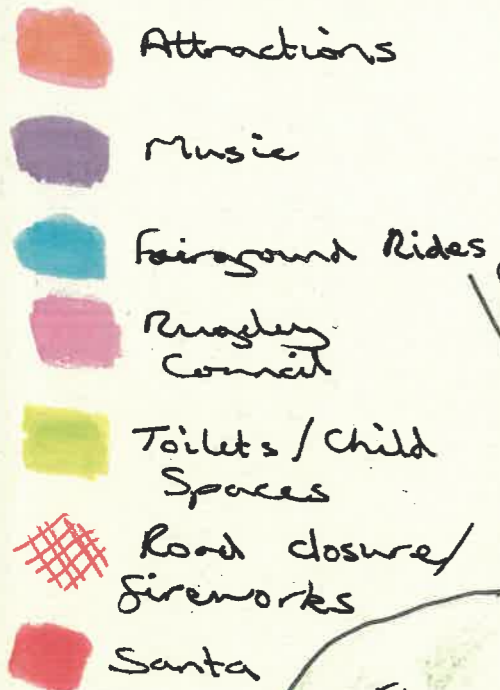 Attractions
Music
Fairground Rides
Rugeley
Council
Toilets / Child
Spaces
Road closure/
fireworks
Santa